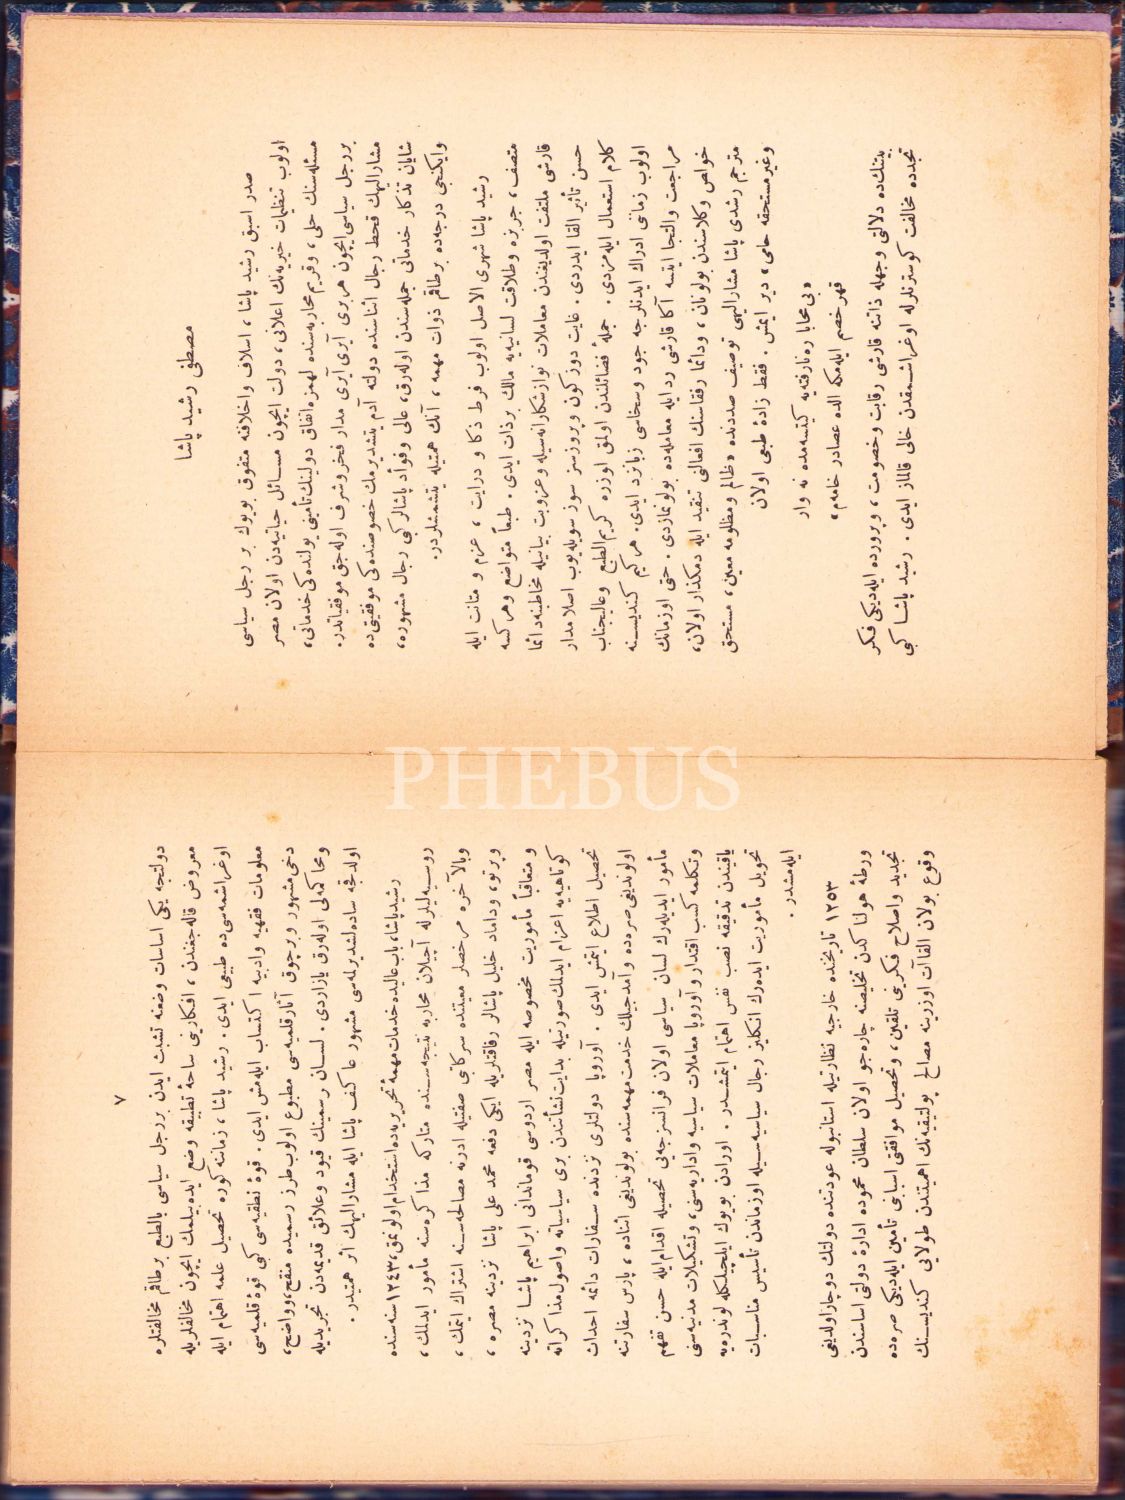 مصطفى رشيد پاشا
صدر اسبق رشيد پاشا ، اسلاف واخلافنه متفوق بويوك بر رجل سياسى
اولوب تنظيمات خيريه‌نك اعلانى ، دولت ايچون مسائل حياتيه‌دن اولان مصر
مسئله‌سنك حلى ، وقريم محاربه‌سنده لهمزه اتفاق دولينك تأمينى يولنده‌كى خدماتى ،
بر رجل سياسى ايچون هر برى آيرى آيرى مدار فخر وشرف اوله‌جق موفقياتدر .
مشاراليهك قحط رجال اثناسنده دولته آدم يتشديرمك خصوصنده‌كى موفقيتى ده
شايان تذكار خدماتى جمله‌سندن اوله‌رق ، عالى وفوأد پاشالر كبى رجال مشهوره ،
وايكنجى درجه‌ده بر طاقم ذوات مهمه ، آنك همتيله يتشمشلردر .
رشيد پاشا شهرى الاصل اولوب فرط ذكا و درايت ، عزم و متانت ايله
متصف ، جربزه وطلاقت لسانيه‌يه مالك بر ذات ايدى . طبعاً متواضع وهر كسه
قارشى ملتفت اولديغندن معاملات نوازشكارانه‌سيله وعذوبت بيانيله مخاطبنه دائما
حسن تأثير القا ايدردى . غايت دوزكون وپروزسز سوز سويله‌يوب اصلا مدار
كلام استعمال ايله‌مزدى . جملهٔ فضائلندن اولمق اوزره كريم الطبع وعاليجناب
اولوب زمانى ادراك ايدنلرجه جود وسخاسى زبانزد ايدى . هر كيم كنديسنه
مراجعت والتجا ايتسه آكا قارشى رد ايله معامله‌ده بولونمازدى . حتى اوزمانك
خواص وكلاسندن بولونان ، ودائما رفقاسنك افعالى تنقيد ايله دمكذار اولان ،
مترجم رشدى پاشا مشاراليهى توصيف صددنده «ظالم ومظلومه معين ، مستحق
وغير مستحقه حامى» دير ايمش . فقط زادهٔ طبعى اولان
«بى محابا ره نارفته‌يه كيتسه‌مده نه وار
قهر خصم ايله‌مكه الده عصادر خامه‌م»
بيتنك‌ده دلالتى وجهله ذاتنه قارشى رقابت وخصومت ، وپرورده ايله‌ديكى فكر
تجدده مخالفت كوسترنلرله اوغراشمقدن خالى قالماز ايدى . رشيد پاشا كبى
٧
دولتجه يكى اساسات وضعنه تشبث ايدن بر رجل سياسى بالطبع بر طاقم مخالفتلره
معروض قاله‌جغندن ، افكارينى ساحهٔ تطبيقه وضع ايده‌بيلمك ايچون مخالفلريله
اوغراشمه‌سى ده طبيعى ايدى . رشيد پاشا ، زماننه كوره تحصيل علمه اهتمام ايله
معلومات فقهيه وادبيه اكتساب ايله‌مش ايدى . قوهٔ نطقيه‌سى كبى قوهٔ قلميه‌سى
دخى مشهور و بر چوق آثار قلميه‌سى مطبوع اولوب طرز رسميده منقح ، وواضح ،
ومحاكمه‌لى اوله‌رق يازاردى . لسان رسمينك قيود وعلائق قديمه‌دن تجريديله
اولدقجه ساده‌لشديرلمه‌سى مشهود عاكف پاشا ايله مشاراليهك اثر همتيدر .
رشيد پاشا ، باب عاليده خدمات مهمهٔ تحريريه‌ده استخدام اولونمق ، ١٢٤٣ سنه‌سنده
روسيه‌ليلرله آچيلان محاربه نتيجه‌سنده متاركه مذاكره‌سنه مأمور ايدلمك ،
وبالآخره مرخصلر معيتنده سركاتبى صفتيله ادرنه مصالحه‌سنه اشتراك ايتمك ،
وپرتو ، وداماد خليل پاشالر رفاقتلريله ايكى دفعه محمد على پاشا نزدينه مصره ،
و متعاقباً مأموريت مخصوصه ايله مصر اردوسى قومانداني ابراهيم پاشا نزدينه
كوتاهيه‌يه اعزام ايدلمك صورتيله بدايت نشأتندن برى سياسياته واصول مذاكراته
تحصيل اطلاع ايتمش ايدى . آوروپا دولتلرى نزدنده سفارات دائمه احداث
اولونديغى صره‌ده وآمدجيلك خدمت مهمه‌سنده بولونديغى اثناده ، پارس سفارتنه
مأمور ايديله‌رك لسان سياسى اولان فرانسزجه‌يى تحصيله اقدام ايله حسن تفهم
وتكلمه كسب اقتدار و آوروپا معاملات سياسيه واداريه‌سنى ، وتشكيلات مدنيه‌سنى
ياقيندن تدقيقه نصب نفس اهتمام ايتمشدر . اورادن بويوك ايلچيلكله لوندره‌يه
تحويل مأموريت ايده‌رك انكليز رجال سياسيه‌سيله اوزماندن تأسيس مناسبات
ايله‌مشدر .
١٢٥٣ تاريخنده خارجيه نظارتيله استانبوله عودتنده دولتك دوچار اولديغى
ورطهٔ هولناكدن تخليصنه چاره‌جو اولان سلطان محموده ادارهٔ دولتى اساسندن
تجديد واصلاح فكرينى تلقين ، وتحصيل موافقتى اسبابنى تأمين ايله‌ديكى صره‌ده
وقوع بولان القاآت اوزرينه مصالح پولتيقيه‌نك اهميتندن طولايى كنديسنك
PHEBUS